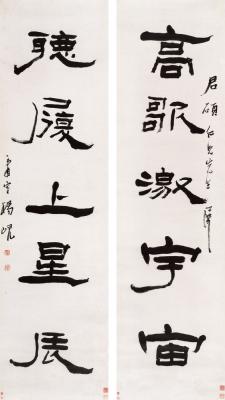 高歌激宇宙
君碩仁兄先生
聽履上星辰
楊峴